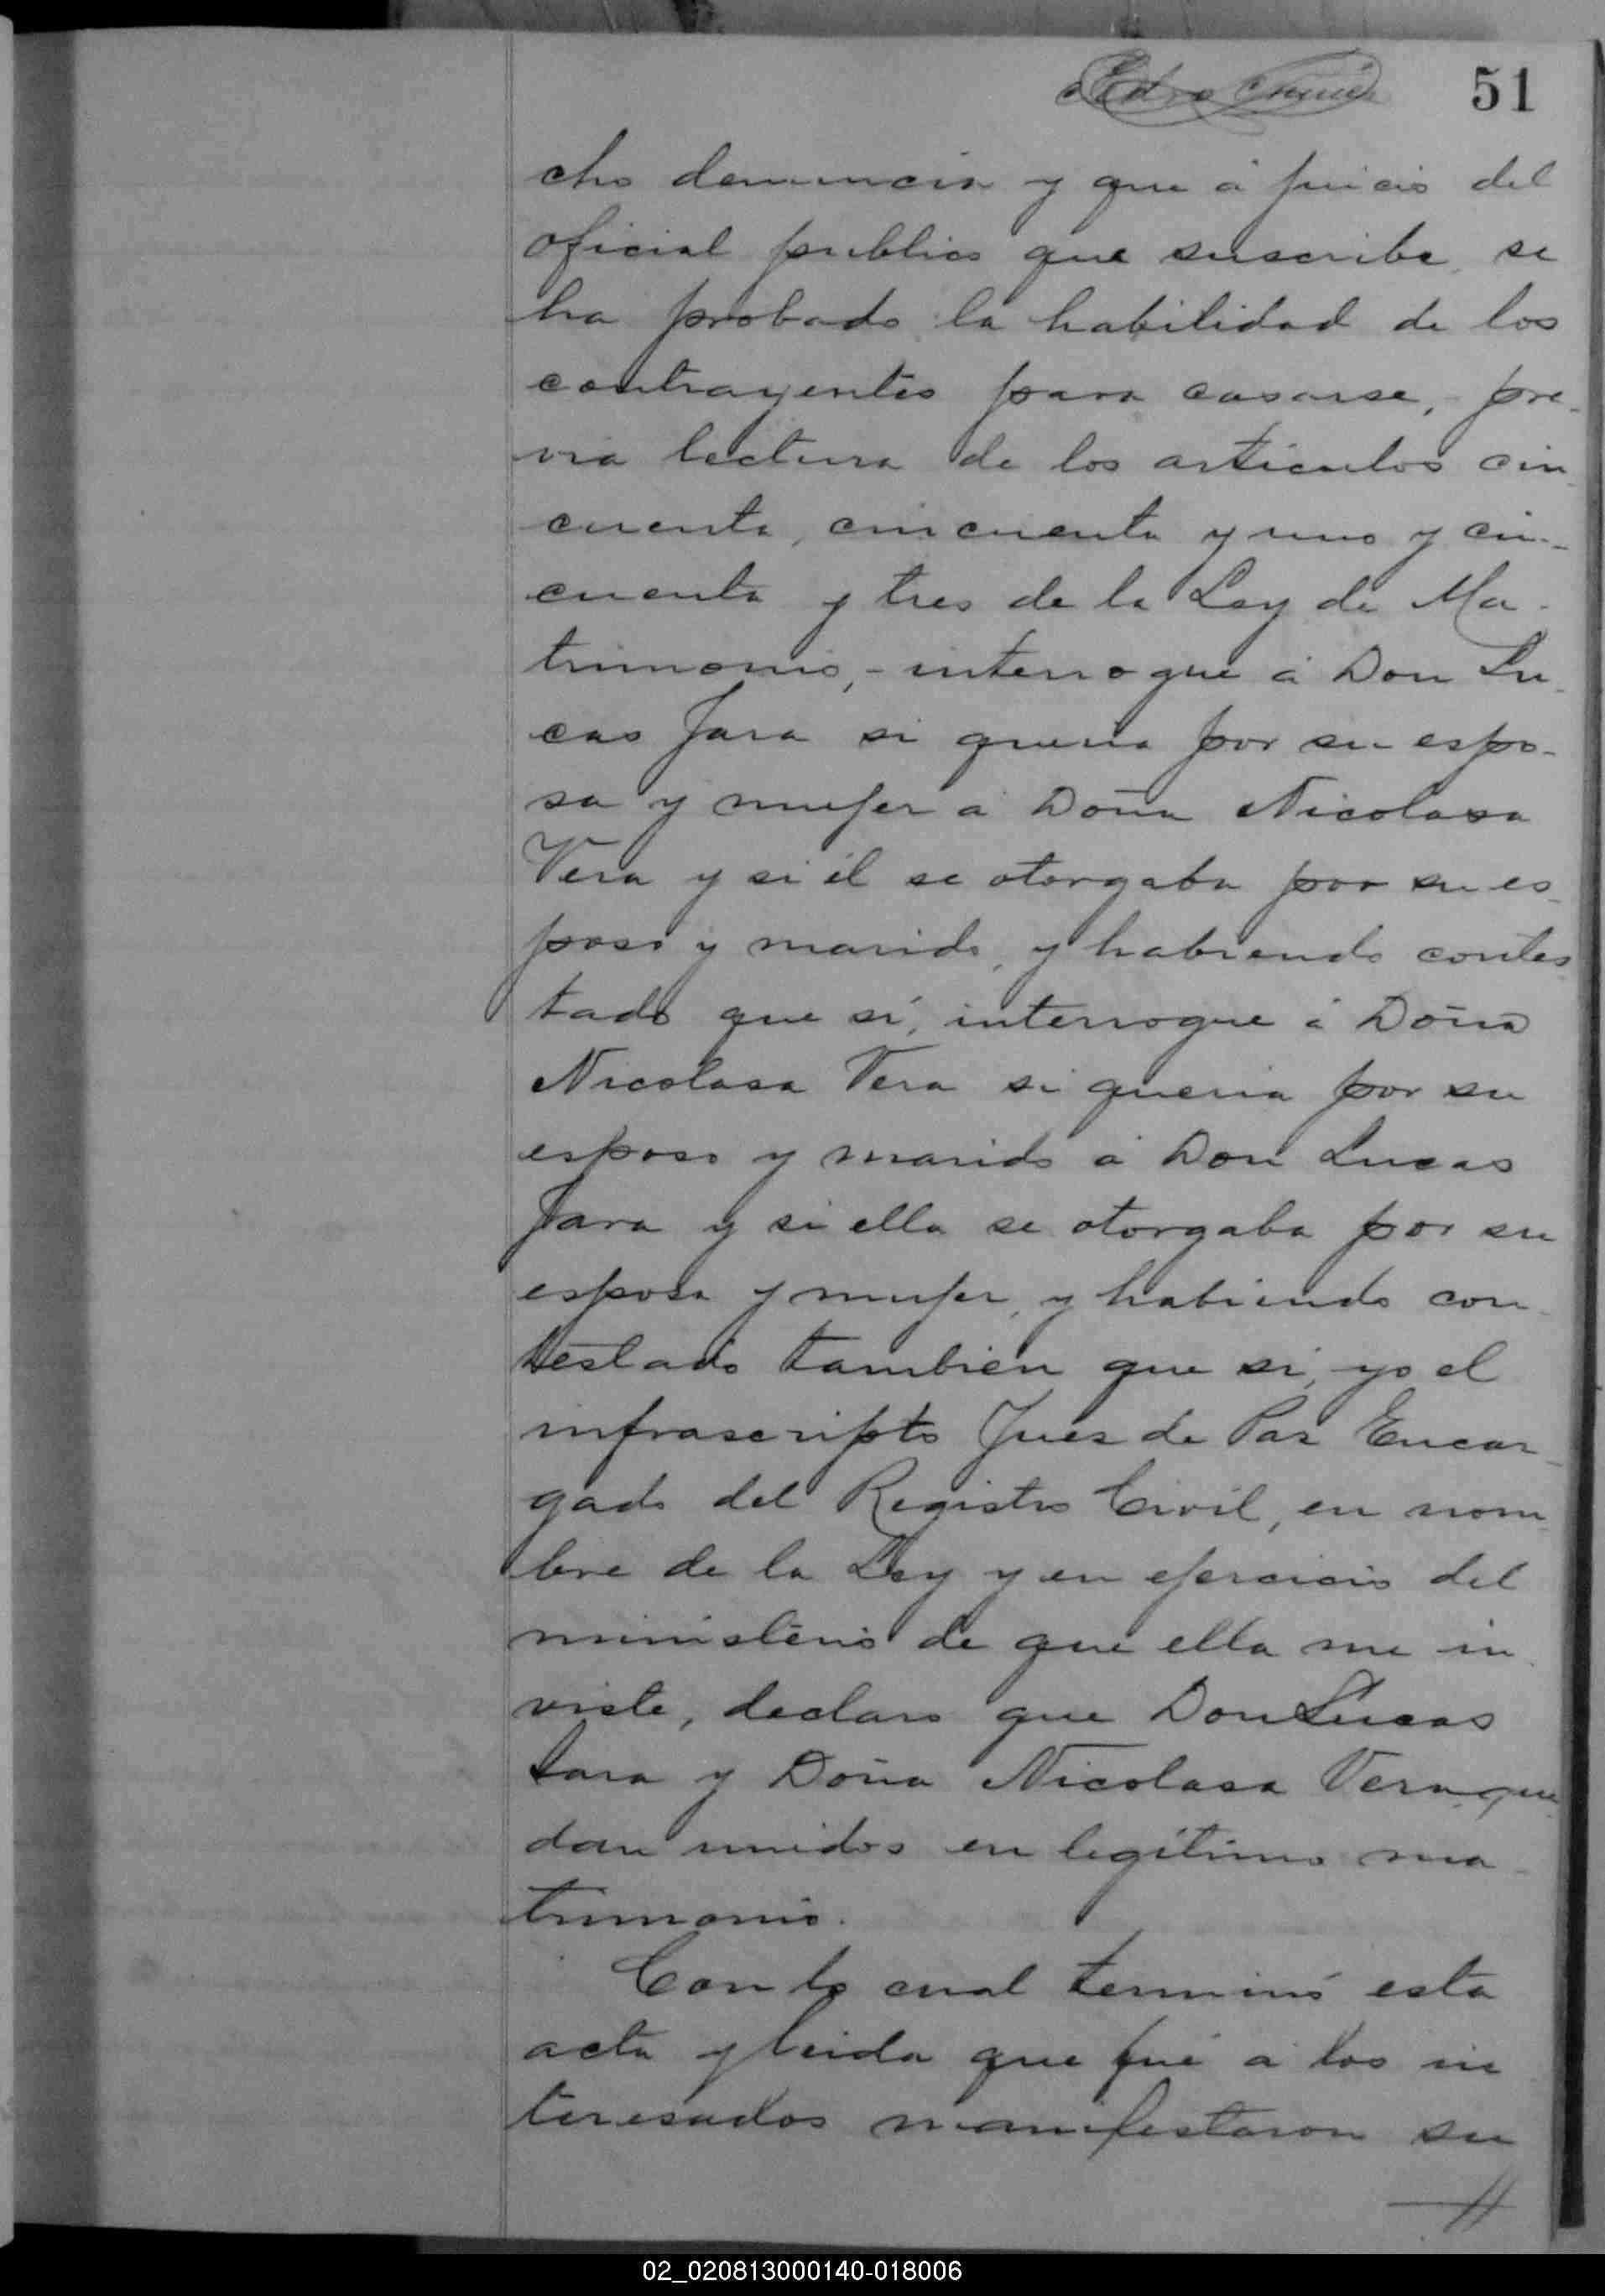 51
cho denuncia y que á juicio del
oficial publico que suscribe, se
ha probado la habilidad de los
contrayentes para casarse, pre-
via lectura de los articulos cin
cuenta, cincuenta y uno y cin-
cuenta y tres de la Ley de Ma-
trimonio,- interrogué á Don Lu
cas Jara si queria por su espo-
sa y mujer á Doña Nicolasa
Vera y si él se otorgaba por su es-
poso y marido, y habiendo contes
tado que sí, interrogue á Doña
Nicolasa Vera si queria por su
esposo y marido á Don Lucas
Jara y si ella se otorgaba por su
esposa y mujer, y habiendo con-
testado tambien que si, yo el
infrascripto Juez de Paz Encar-
gado del Registro Civil, en nom
bre de la Ley y en ejercicio del
ministerio de que ella me in
viste, declaro que Don Lucas
Jara y Doña Nicolasa Vera que
dan unidos en legítimo ma-
trimonio.
Con lo cual terminó esta
acta y leida que fué á los in
teresados manifestaron su
02_020813000140-018006